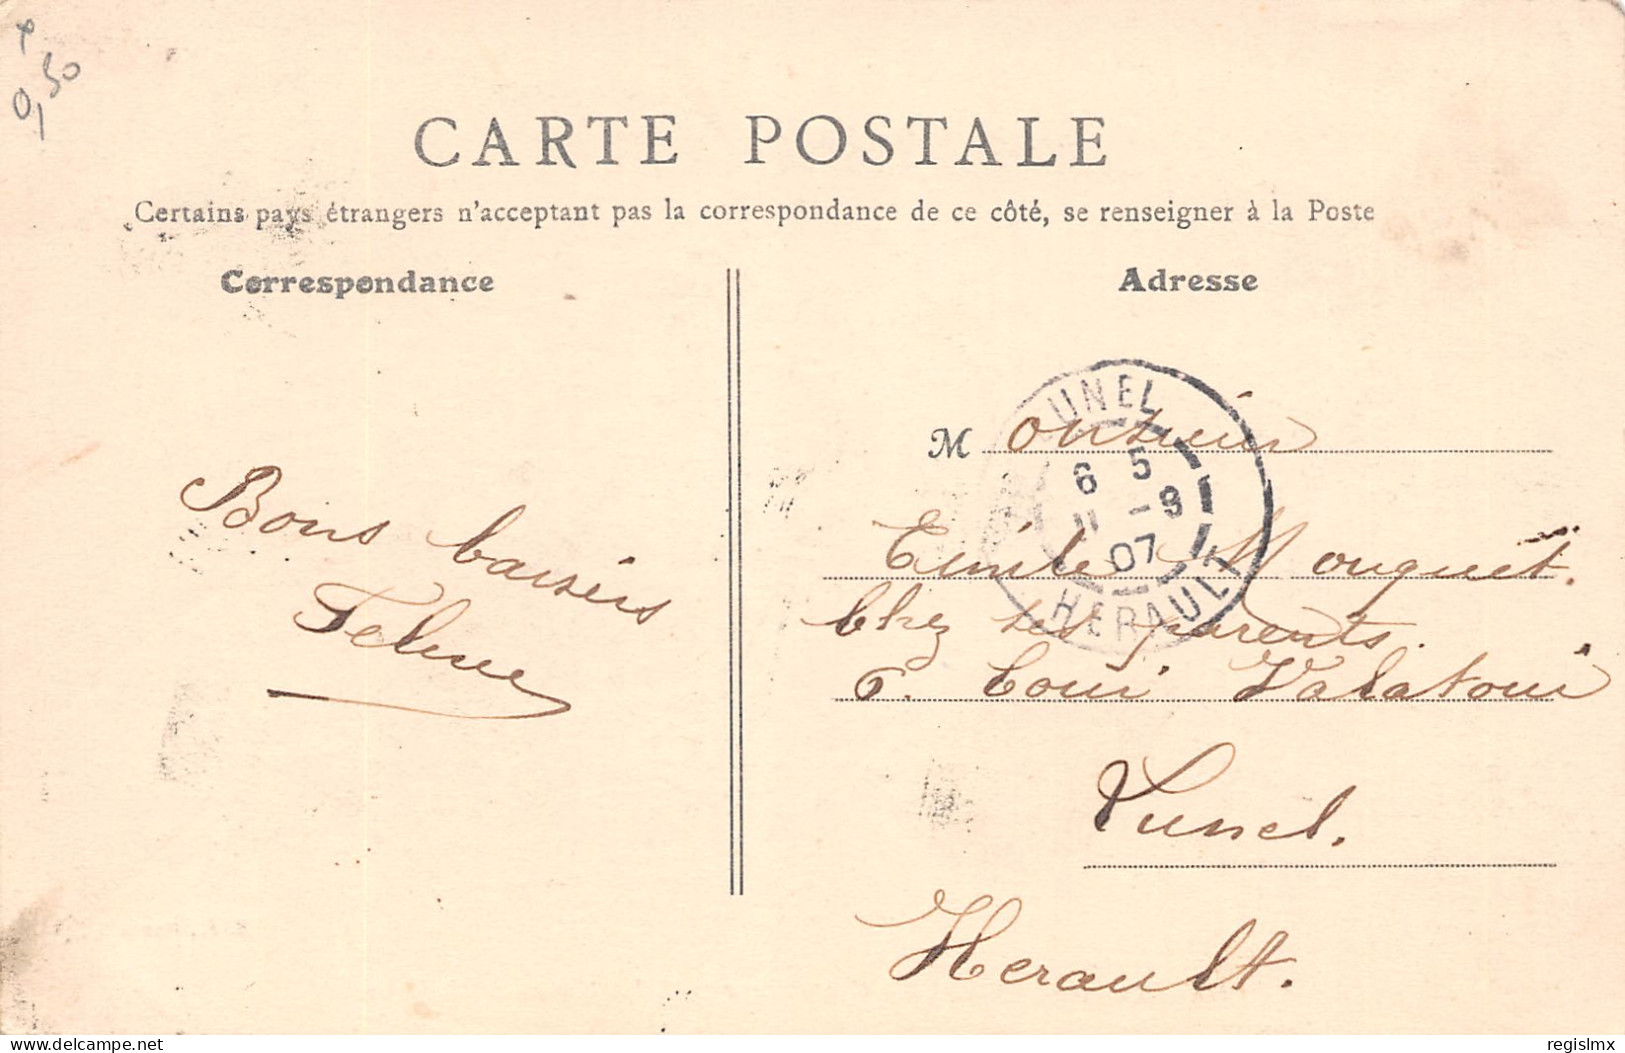 0,50
CARTE POSTALE
Certains pays étrangers n'acceptant pas la correspondance de ce côté, se renseigner à la Poste
Correspondance
Adresse
Bons baisers
M onsieur
UNEL
6 5
11 -9
07
HERAULT
Emile Mouguet.
Chez ses parents.
Lunel.
Herault.
delcampe.net
regislmx